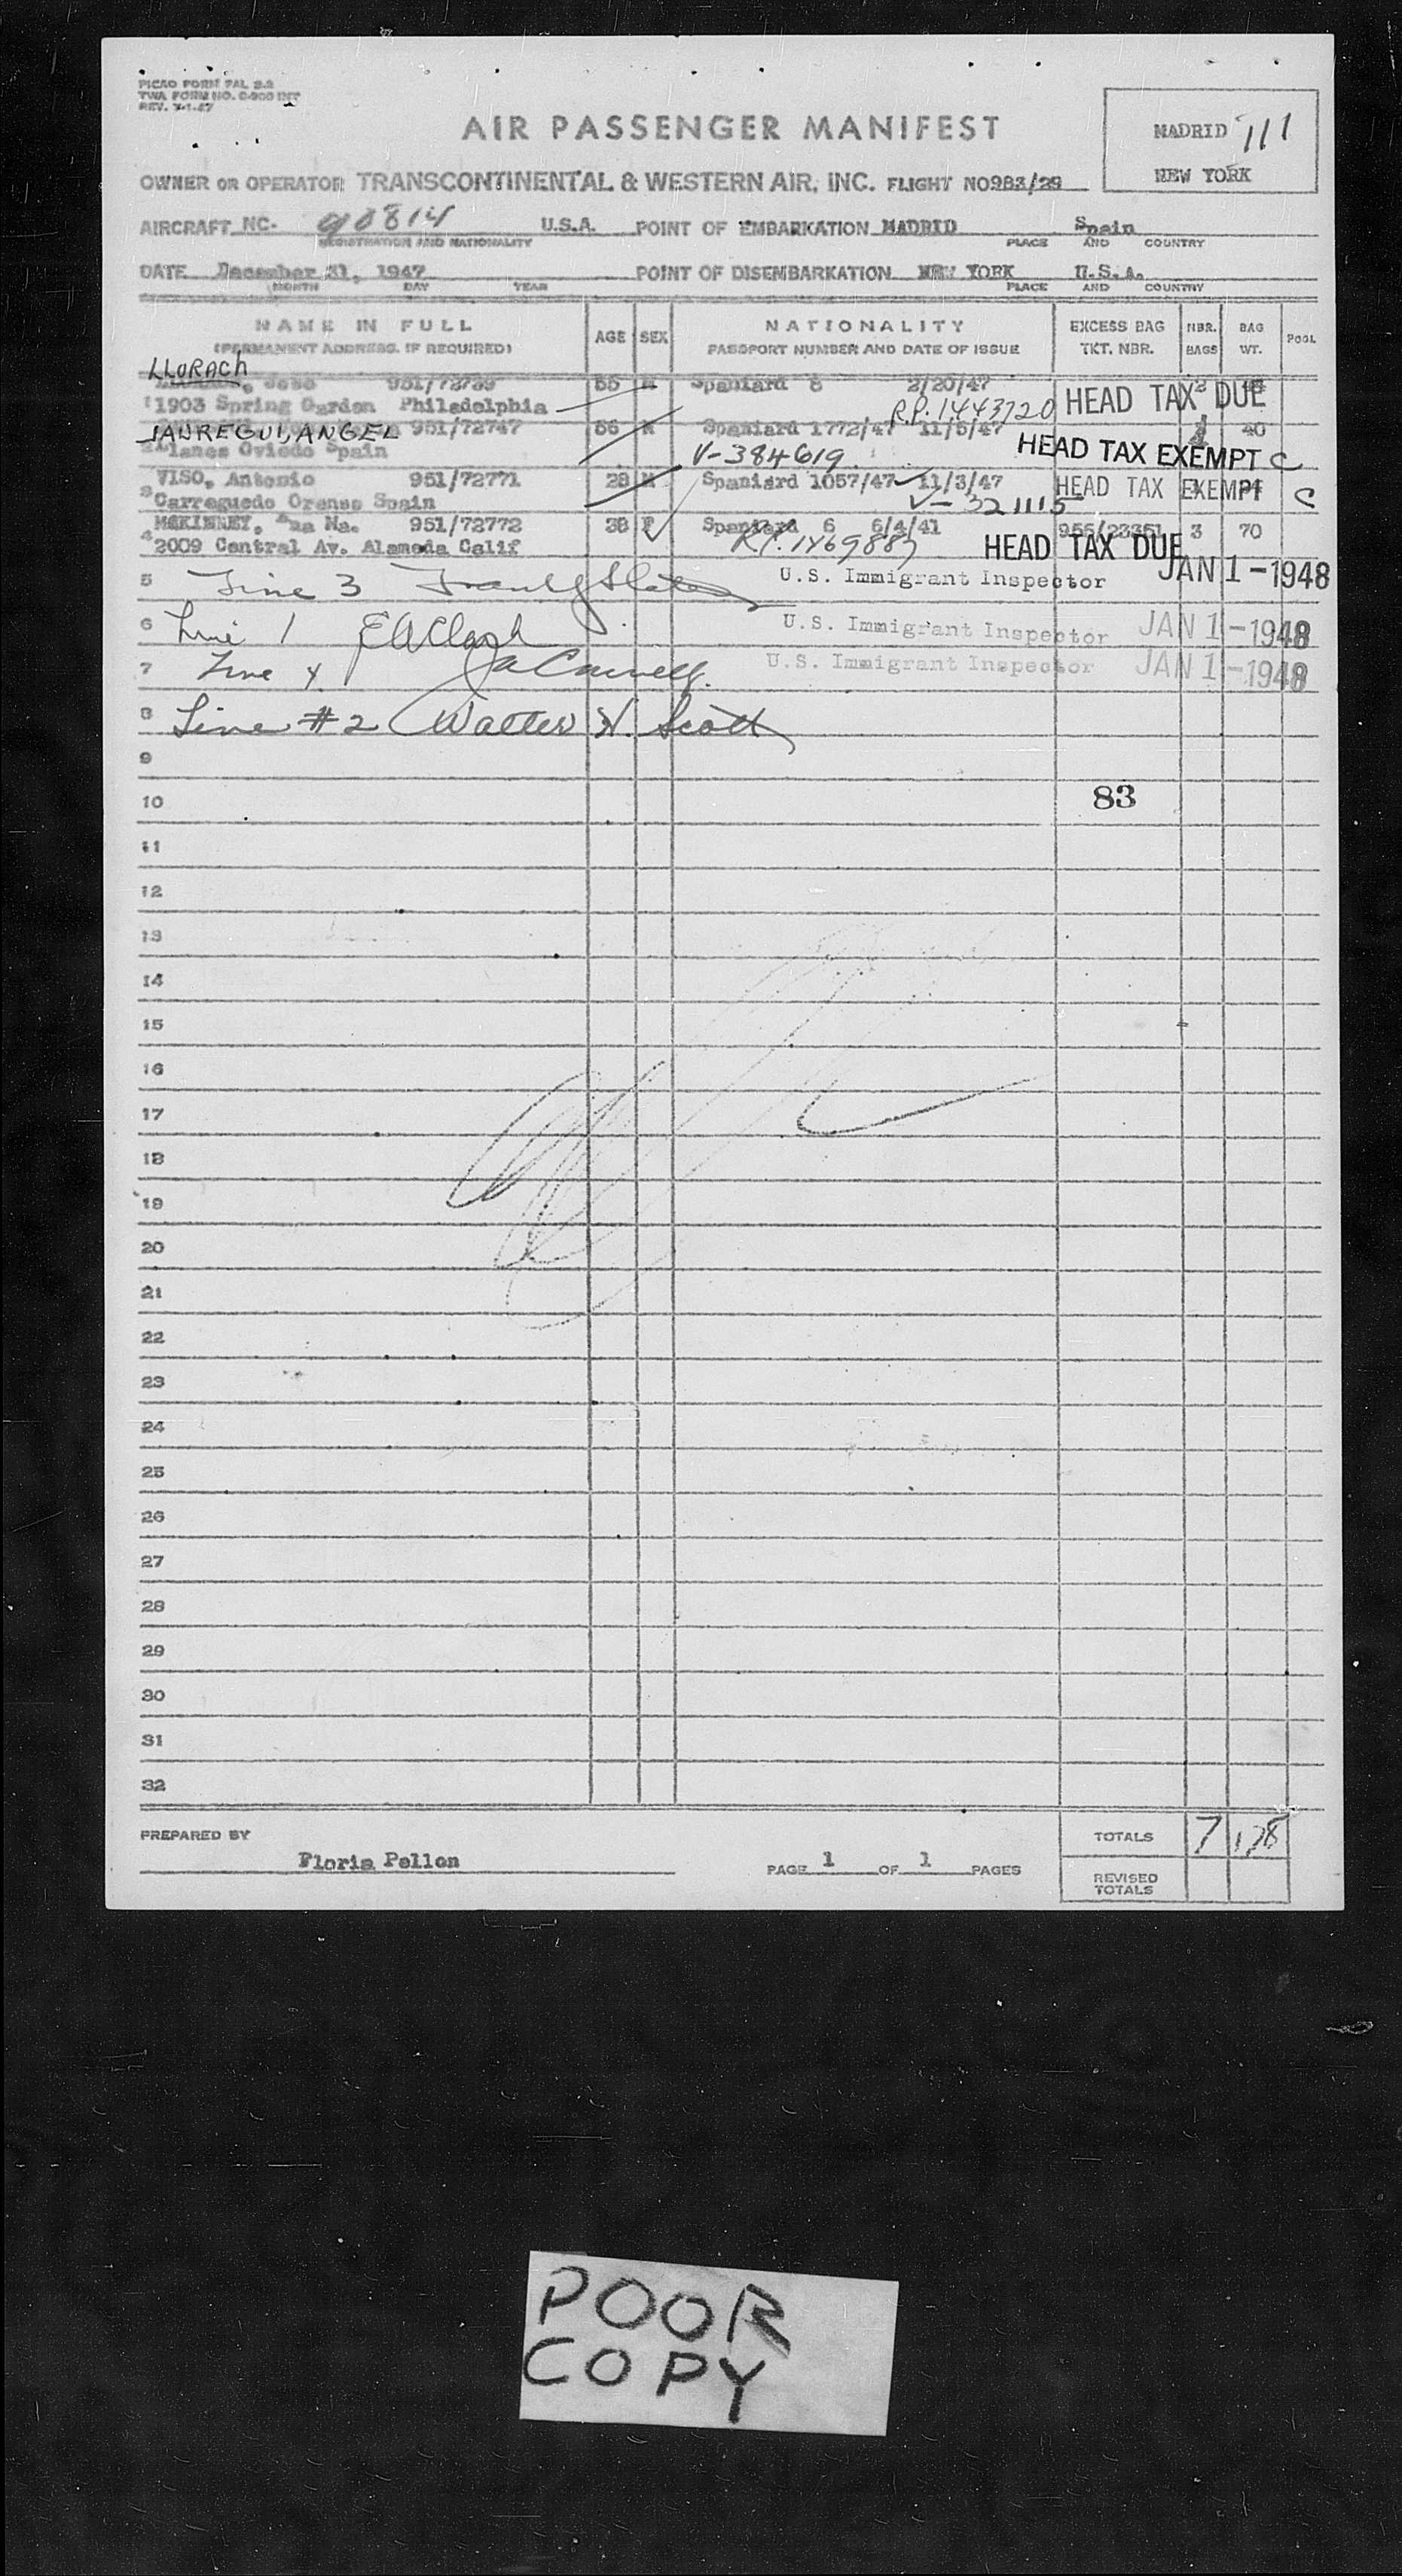 PICAO FORM FAL 2-2
TWA FORM NO. C-900 INT
REV. 7-1-47
AIR PASSENGER MANIFEST
MADRID 111
NEW YORK
OWNER OR OPERATOR TRANSCONTINENTAL & WESTERN AIR, INC. FLIGHT NO 983/29
AIRCRAFT NC- 90814 U.S.A. POINT OF EMBARKATION MADRID Spain
REGISTRATION AND NATIONALITY PLACE AND COUNTRY
DATE December 31, 1947 POINT OF DISEMBARKATION NEW YORK U.S.A.
MONTH DAY YEAR PLACE AND COUNTRY
NAME IN FULL AGE SEX NATIONALITY EXCESS BAG NBR. BAG POOL
(PERMANENT ADDRESS, IF REQUIRED) PASSPORT NUMBER AND DATE OF ISSUE TKT. NBR. BAGS WT.
LLORACH
Jose 951/72739 55 M Spaniard 8 2/20/47 2
1 1903 Spring Garden Philadelphia R.P. 1443720 HEAD TAX DUE
JAUREGUI, ANGEL 951/72747 56 M Spaniard 1772/47 11/5/47 40
2 Llanes Oviedo Spain V-384619 HEAD TAX EXEMPT C
VISO, Antonio 951/72771 28 M Spaniard 1057/47 11/3/47 HEAD TAX EXEMPT C
3 Carreguedo Orense Spain V-321115
McKINNEY, Ana Ma. 951/72772 38 F Spaniard 6 6/4/41 956/23351 3 70
4 2009 Central Av. Alameda Calif R.P. 1469887 HEAD TAX DUE
5 Line 3 U.S. Immigrant Inspector JAN 1-1948
6 Line 1 U.S. Immigrant Inspector JAN 1-1948
7 Line 4 U.S. Immigrant Inspector JAN 1-1948
8 Line #2 Walter H. Scott
9
10 83
11
12
13
14
15
16
17
18
19
20
21
22
23
24
25
26
27
28
29
30
31
32
PREPARED BY TOTALS 7 178
Floria Pellon PAGE 1 OF 1 PAGES
REVISED
TOTALS
POOR
COPY